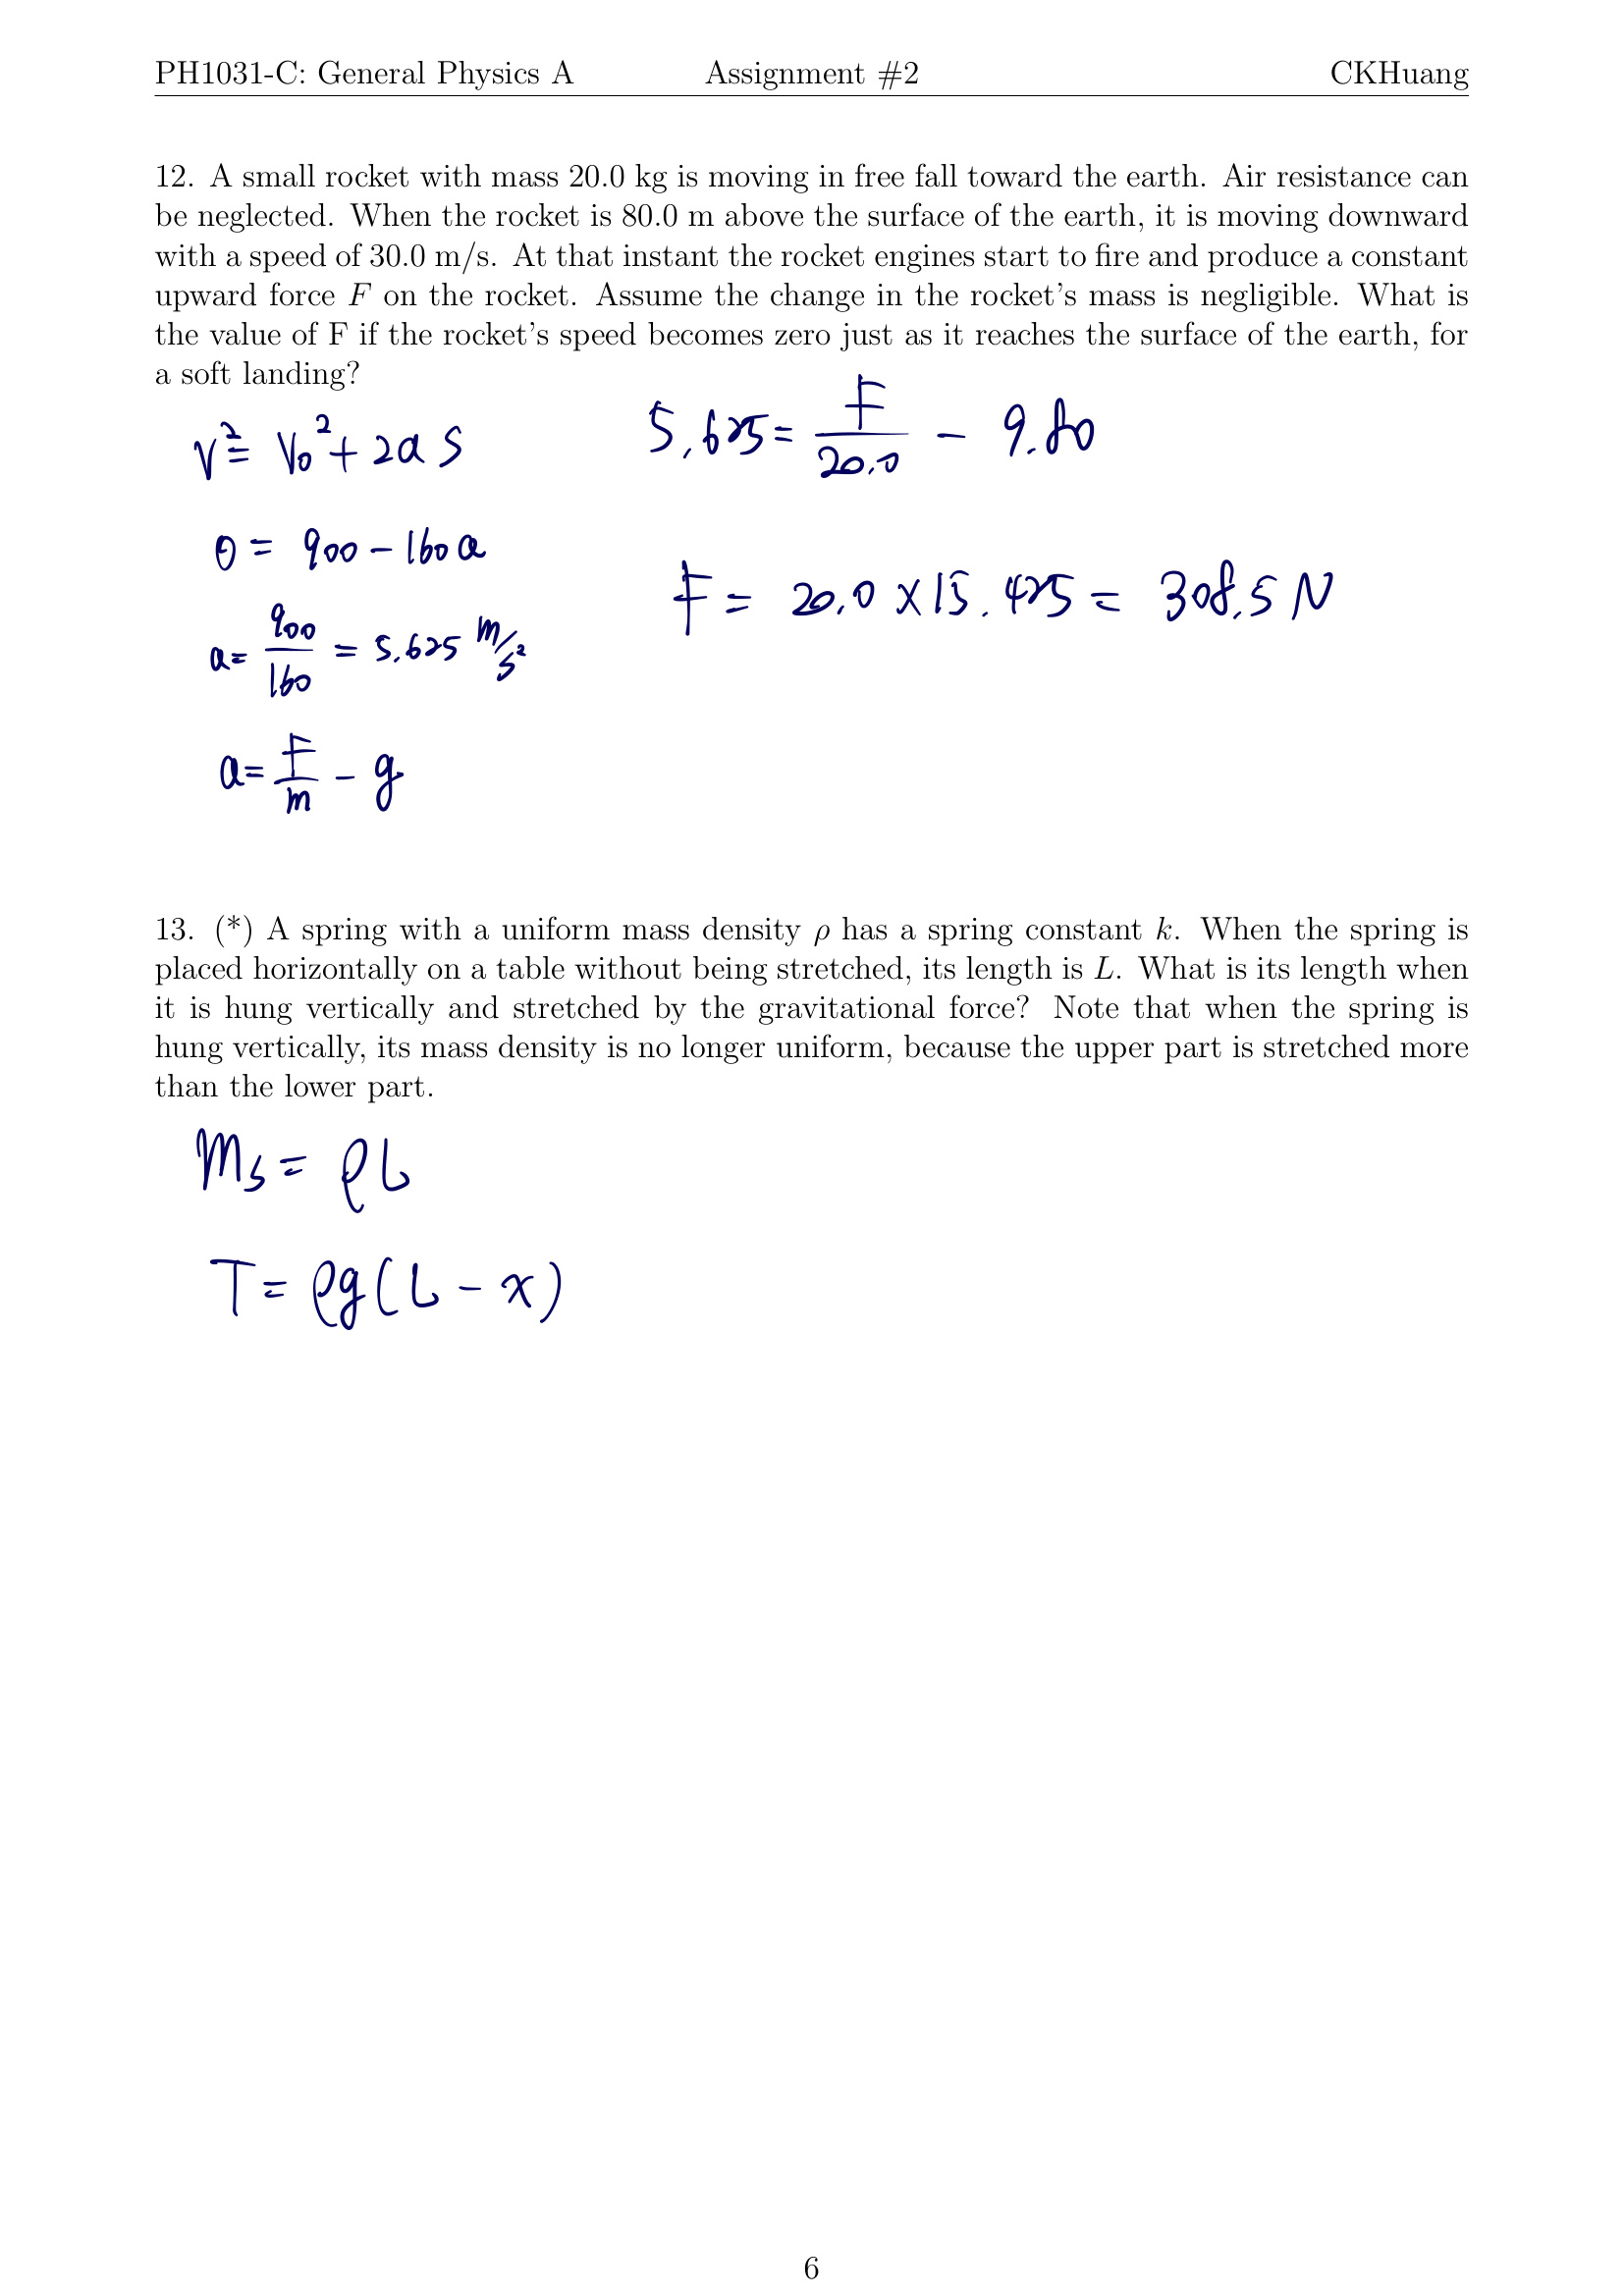 PH1031-C: General Physics A Assignment #2 CKHuang
12. A small rocket with mass 20.0 kg is moving in free fall toward the earth. Air resistance can
be neglected. When the rocket is 80.0 m above the surface of the earth, it is moving downward
with a speed of 30.0 m/s. At that instant the rocket engines start to fire and produce a constant
upward force F on the rocket. Assume the change in the rocket's mass is negligible. What is
the value of F if the rocket's speed becomes zero just as it reaches the surface of the earth, for
a soft landing?
v² = v₀² + 2as
0 = 900 - 160a
a = 900/160 = 5.625 m/s²
a = F/m - g
5.625 = F/20.0 - 9.80
F = 20.0 × 15.425 = 308.5 N
13. (*) A spring with a uniform mass density ρ has a spring constant k. When the spring is
placed horizontally on a table without being stretched, its length is L. What is its length when
it is hung vertically and stretched by the gravitational force? Note that when the spring is
hung vertically, its mass density is no longer uniform, because the upper part is stretched more
than the lower part.
Ms = ρL
T = ρg(L - x)
6